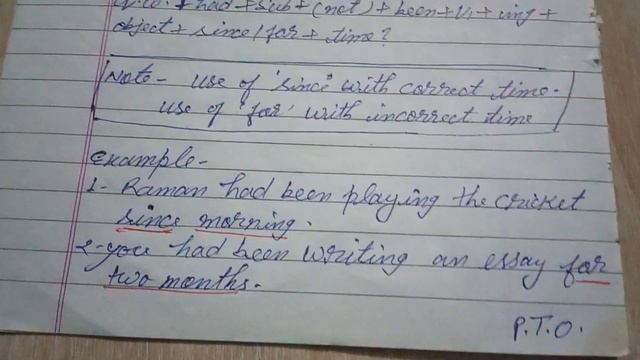 + had + sub + (not) + been + V1 + ing +
object + since / for + time?
Note - use of 'since' with correct time.
use of 'for' with incorrect time
Example -
1- Raman had been playing the cricket
since morning.
2- you had been writing an essay for
two months.
P.T.O.